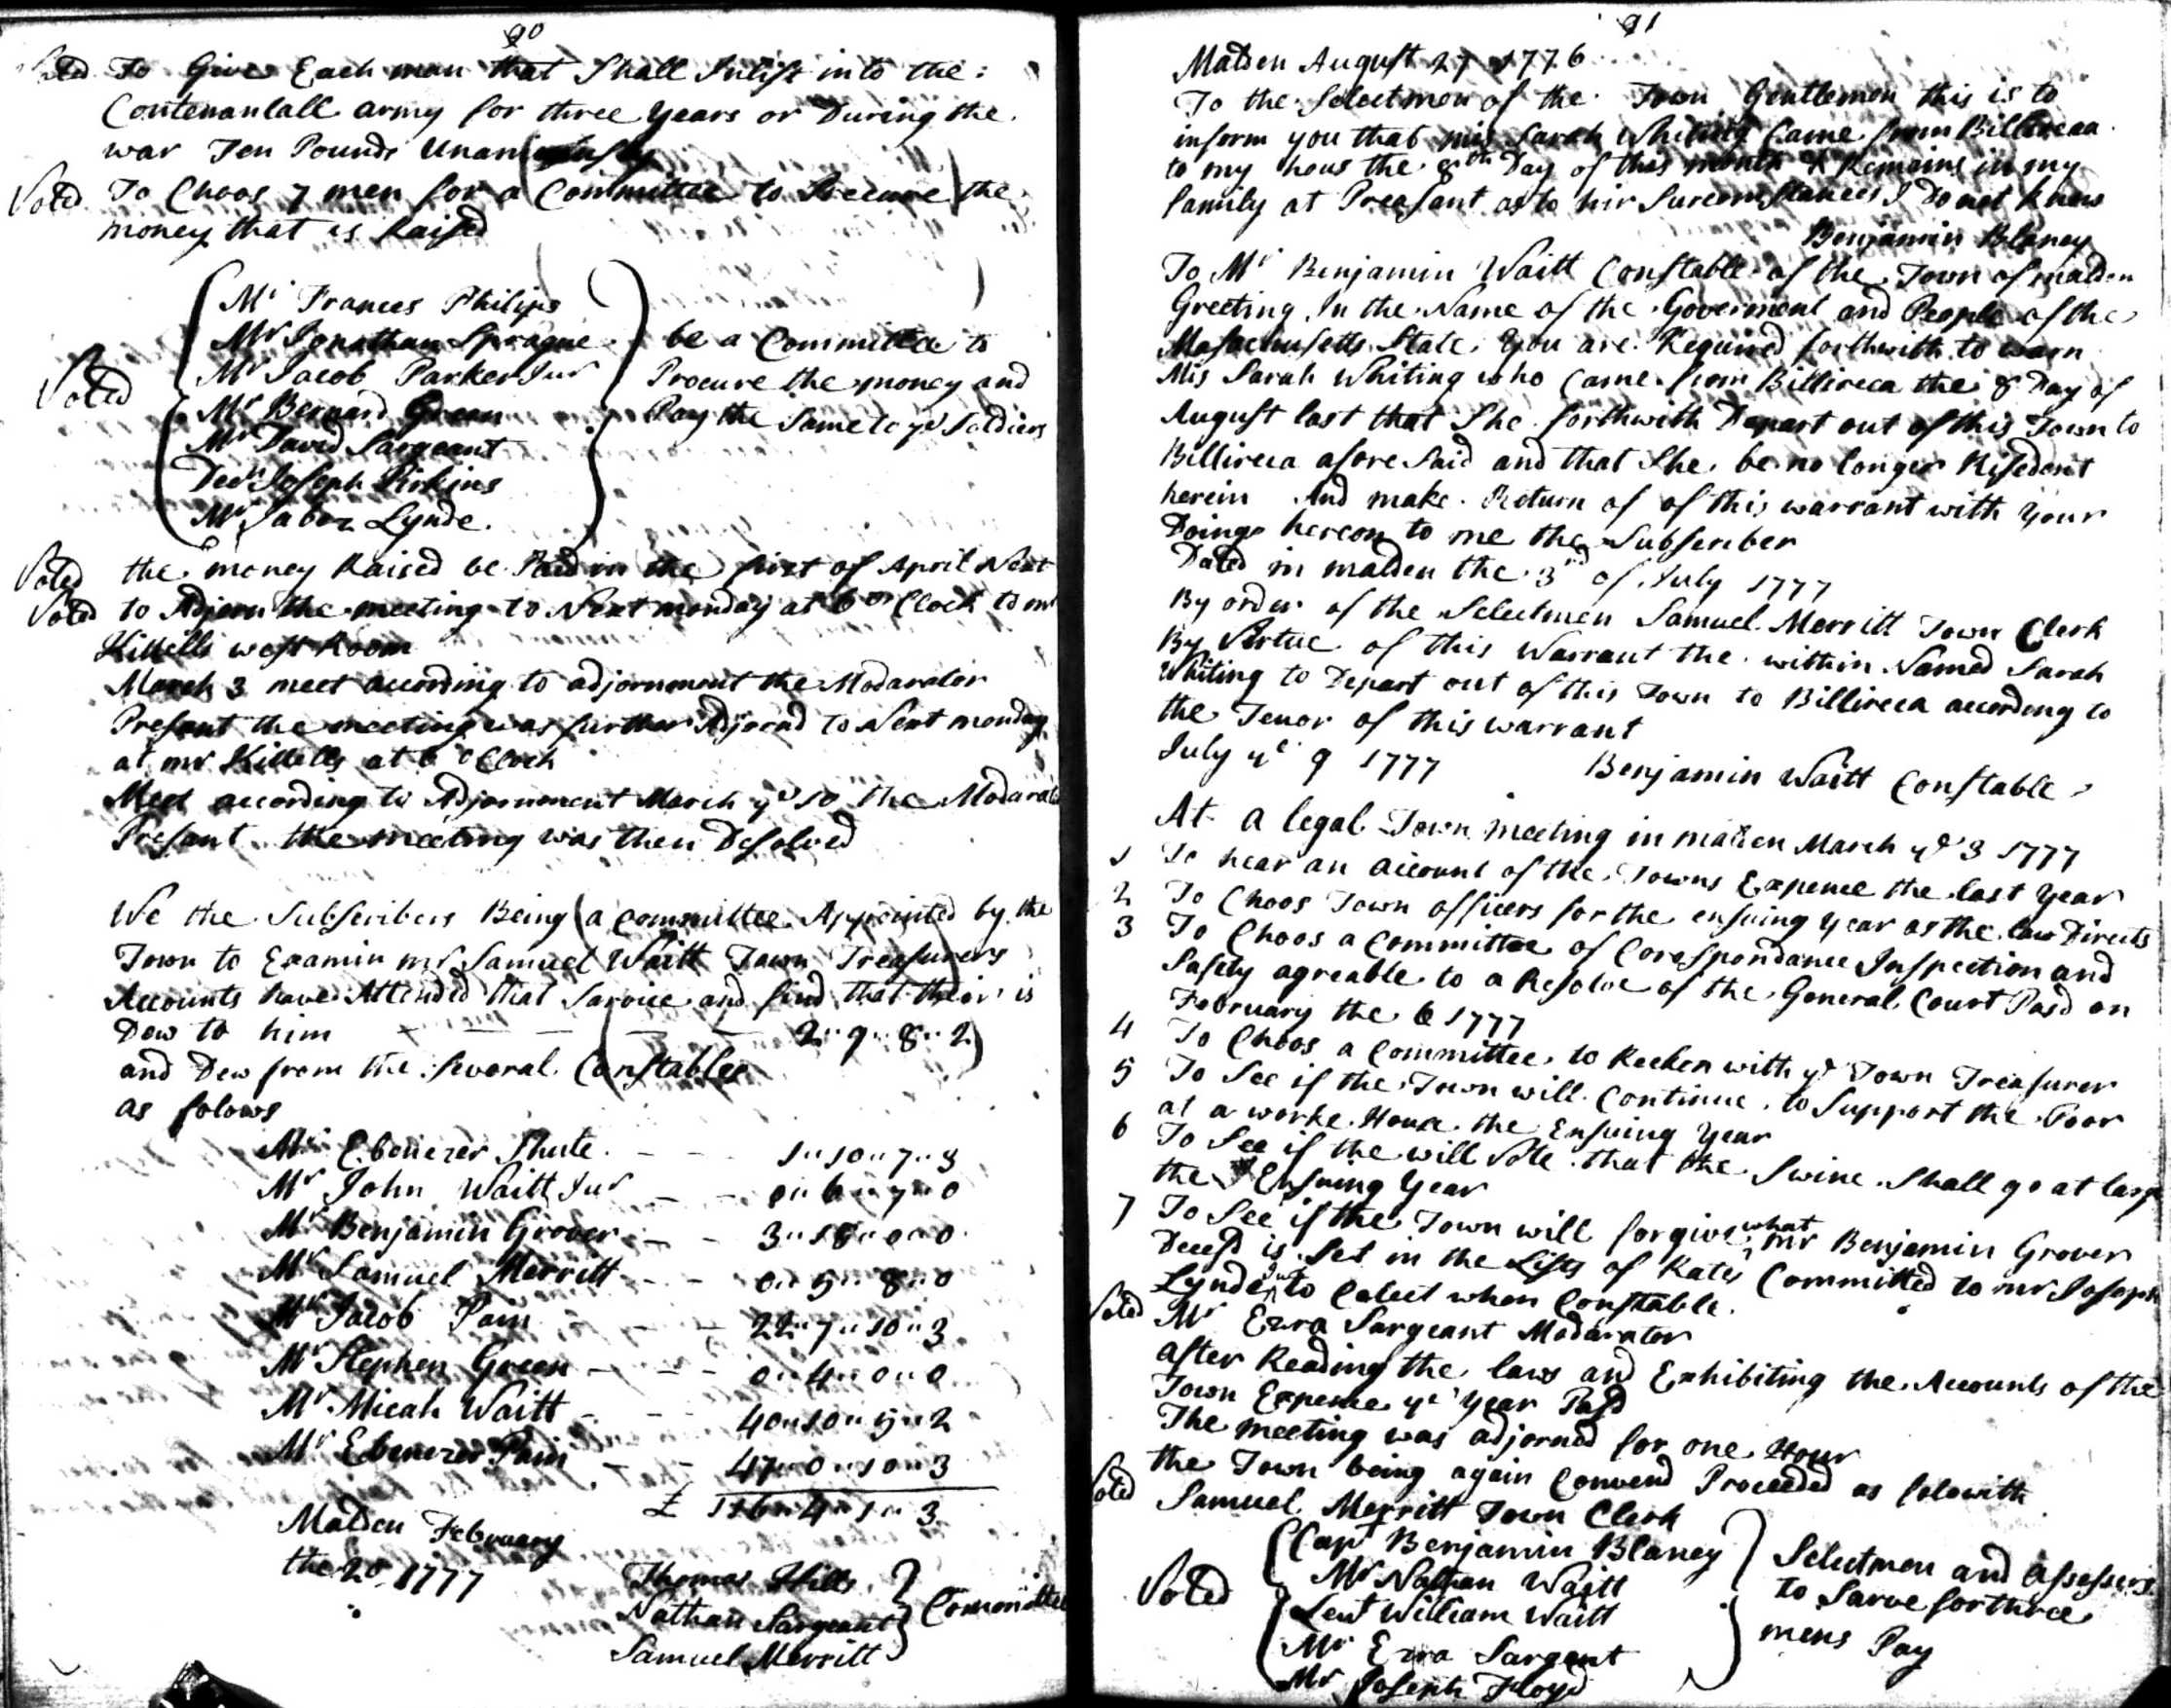 90
Voted To Give Each man that Shall Inlist into the
Contenantall army for three years or During the
war Ten Pounds Unanimusly
Voted To Choos 7 men for a Committee to Procure the
money that is Raised
Mr Frances Philips
Mr Jonathan Sprague
Mr Jacob Parker Jur
Mr Bernard Green
Mr David Sargeant
Decn Joseph Pirkins
Mr Jabez Lynde
Voted
be a Committee to
Procure the money and
Pay the Same to ye Soldiers
Voted the money Raised be Paid in the first of April Next
Voted to Adjorn the meeting to Next monday at 6 o Clock to mr
Kittells west Room
March 3 meet according to adjornment the Modarator
Present the meeting was further Adjornd to Next monday
at mr Kittells at 6 o Clock
Meet according to Adjornment March ye 10 the Modarator
Present the meeting was then Desolved
We the Subscribers Being a committee Appointed by the
Town to Examin mr Samuel Waitt Town Treasurers
Accounts have Attended that Sarvice and find that their is
Dew to him 2 " 9 " 8 " 2
and Dew from the Several Constables
as folows
Mr Ebenezer Shute 1 " 10 " 7 " 3
Mr John Waitt Jur 0 " 6 " 7 " 0
Mr Benjamin Grover 3 " 18 " 0 " 0
Mr Samuel Merritt 0 " 5 " 8 " 0
Mr Jacob Pain 22 " 7 " 10 " 3
Mr Stephen Green 0 " 4 " 0 " 0
Mr Micah Waitt 40 " 10 " 5 " 2
Mr Ebenezer Pain 47 " 0 " 10 " 3
£ 116 " 4 " 1 " 3
Malden February
the 20 1777
Thomas Hills
Nathan Sargeant
Samuel Merritt
Committee
91
Malden August 27 1776
To the Selectmen of the Town Gentlemen this is to
inform you that mis Sarah Whiting Came from Billireca
to my hous the 8th Day of this month & Remains in my
family at Preasant as to hir Surcomstances I Do not know
Benjamin Blaney
To Mr Benjamin Waitt Constable of the Town of malden
Greeting In the Name of the Goverment and People of the
Masachusetts State you are Required forthwith to warn
Mis Sarah Whiting who Came from Billireca the 8 Day of
August last that She forthwith Depart out of this Town to
Billireca afore Said and that She be no longer Risedent
herein And make Return of of this warrant with your
Doings hereon to me the Subscriber
Dated in malden the 3rd of July 1777
By order of the Selectmen Samuel Merritt Town Clerk
By Virtue of this Warrant the within Named Sarah
Whiting to Depart out of this Town to Billireca according to
the Tenor of this warrant
July ye 9 1777 Benjamin Waitt Constable
At a legal Town meeting in malden March ye 3 1777
1 To hear an account of the Towns Expence the last year
2 To Choos Town officers for the ensuing year as the law Directs
3 To Choos a Committee of Corespondance Inspection and
Safety agreable to a Resolve of the General Court Pasd on
February the 6 1777
4 To Choos a Committee to Recken with ye Town Treasurer
5 To See if the Town will Continue to Support the Poor
at a worke House the Ensuing year
6 To See if the will Vote that the Swine Shall go at large
the Ensuing Year
7 To See if the Town will forgive what mr Benjamin Grover
Decesd is Set in the Lists of Rates Committed to mr Joseph
Lynde Jur to Colect when Constable
Voted Mr Ezra Sargeant Modarator
after Reading the laws and Exhibiting the Accounts of the
Town Expence ye year Past
The meeting was adjornd for one Hour
the Town being again Convend Proceeded as folowith
Voted Samuel Merritt Town Clerk
Voted
Capt Benjamin Blaney
Mr Nathan Waitt
Leut William Waitt
Mr Ezra Sargent
Mr Joseph Floyd
Selectmen and assessors
to Sarve for three
mens Pay